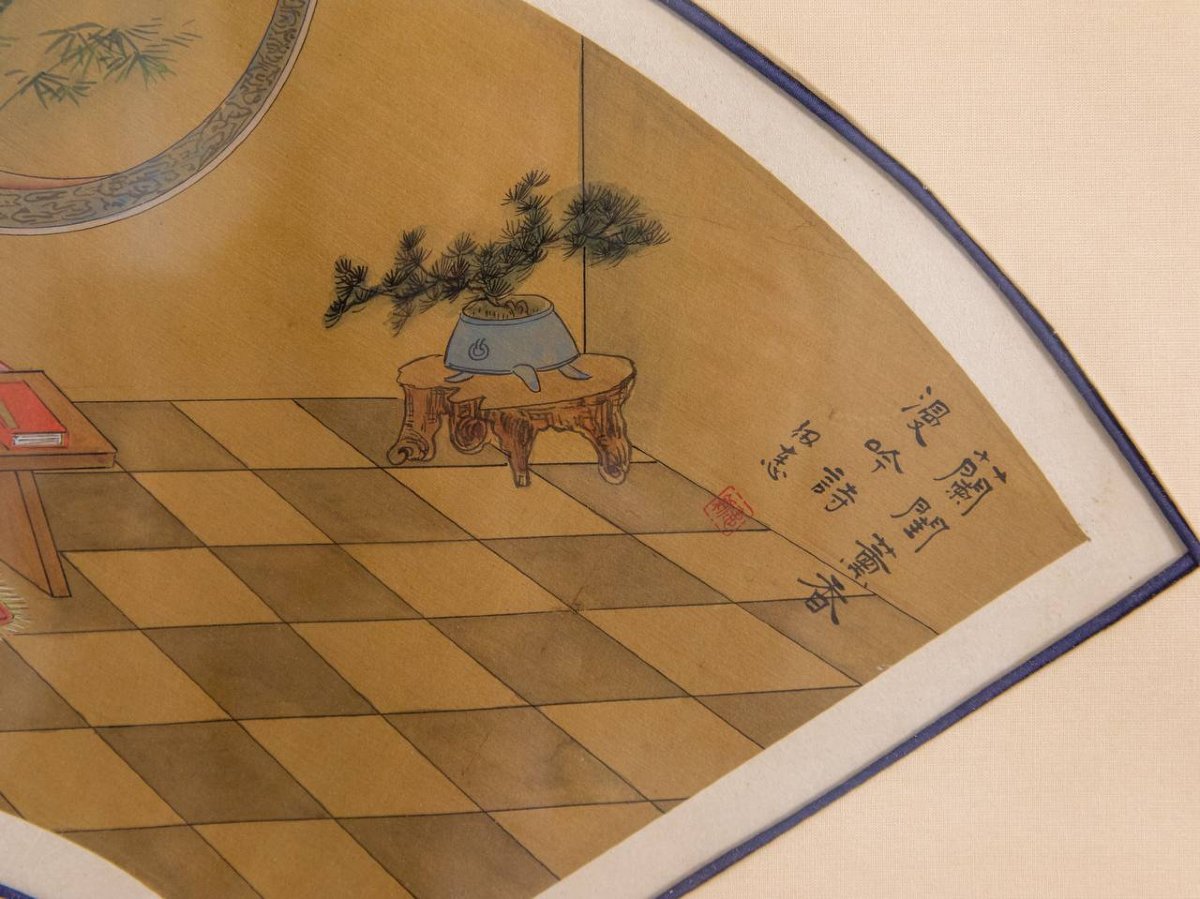 蘭閨薰香
漫吟詩